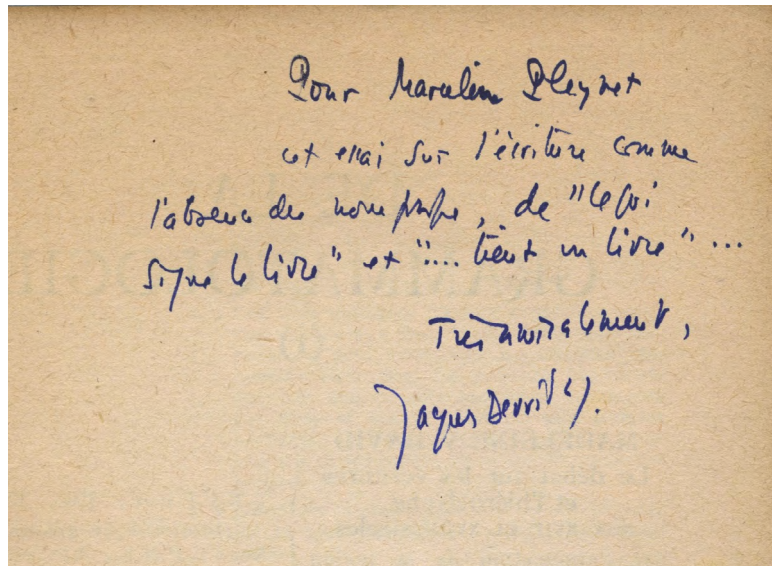 Pour Marcelin Pleynet
cet essai sur l'écriture comme
l'absence du nom propre, de "ce qui
signe le livre" et "... tient un livre" ...
Très amicalement,
Jacques Derrida.